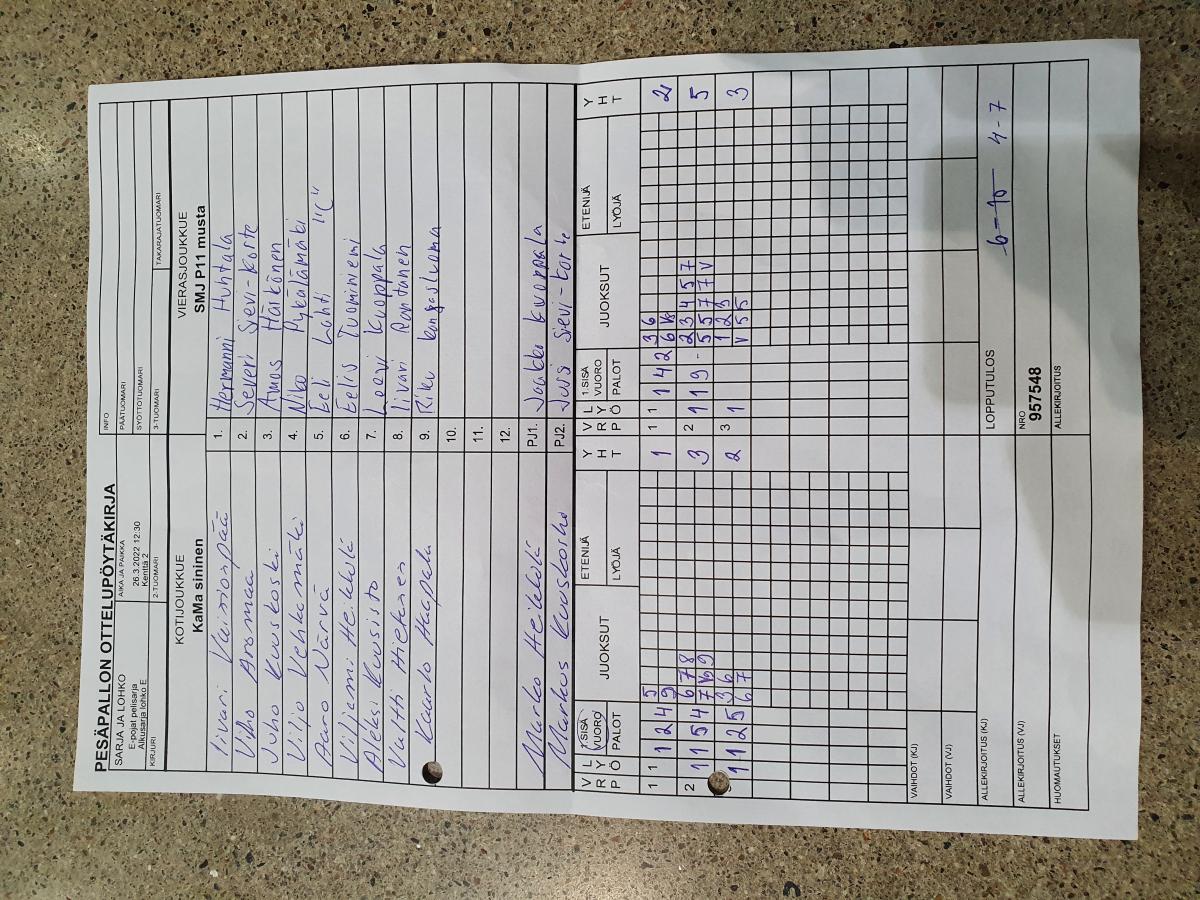 PESÄPALLON OTTELUPÖYTÄKIRJA
SARJA JA LOHKO
E-pojat pelisarja
Alkusarja lohko E
AIKA JA PAIKKA
26.3.2022 12:30
Kenttä 2
INFO
PÄÄTUOMARI
SYÖTTÖTUOMARI
KIRJURI
2-TUOMARI
3-TUOMARI
TAKARAJATUOMARI
KOTIJOUKKUE
KaMa sininen
VIERASJOUKKUE
SMJ P11 musta
Iivari Vainionpää 1. Hermanni Huhtala
Viho Aromaa 2. Severi Sievi-Korte
Juho Kuuskoski 3. Amos Härkönen
Viljo Vehkamäki 4. Niko Pykälämäki
Aaro Närvä 5. Eeli Lahti "C"
Viljami Heikkilä 6. Eelis Tuominiemi
Aleksi Kuusisto 7. Leevi Kuoppala
Valtti Hietanen 8. Iivari Rantanen
Kaarlo Haapala 9. Riku Kangasluoma
10.
11.
12.
Marko Heikkilä PJ1. Jaakko Kuoppala
Markus Kuuskoski PJ2. Jussi Sievi-Korte
V R P L Y Ö 1.SISÄ VUORO PALOT JUOKSUT ETENIJÄ LYÖJÄ Y H T V R P L Y Ö 1.SISÄ VUORO PALOT JUOKSUT ETENIJÄ LYÖJÄ Y H T
1 1 1 2 4 5 1 1 1 1 4 2 3 6 2
9 6 Vs
2 1 1 5 4 6 7 8 3 2 1 1 1 9 - 2 3 4 5 7 5
7 Vs 9 5 5 7 7 V
1 1 2 5 3 6 2 3 1 1 2 3 3
6 7 V 5 5
VAIHDOT (KJ)
VAIHDOT (VJ)
ALLEKIRJOITUS (KJ)
LOPPUTULOS
6-10 4-7
ALLEKIRJOITUS (VJ)
NRO
957548
HUOMAUTUKSET
ALLEKIRJOITUS